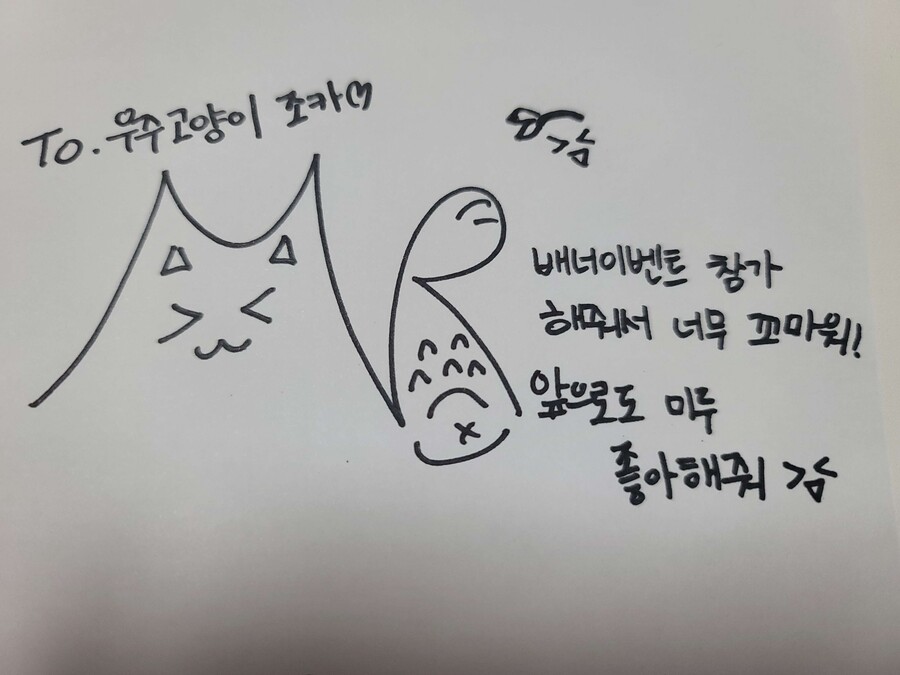 To. 우주고양이 조카♡
배너이벤트 참가
해줘서 너무 꼬마워!
앞으로도 미두
좋아해줘 >ㅿ<